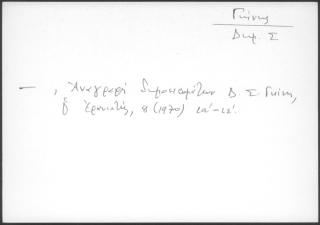 Γκίνης
Δημ. Σ
— , Ἀναγραφὴ δημοσιευμάτων Δ. Σ. Γκίνη,
Ὁ Ἐρανιστής, 8 (1970)